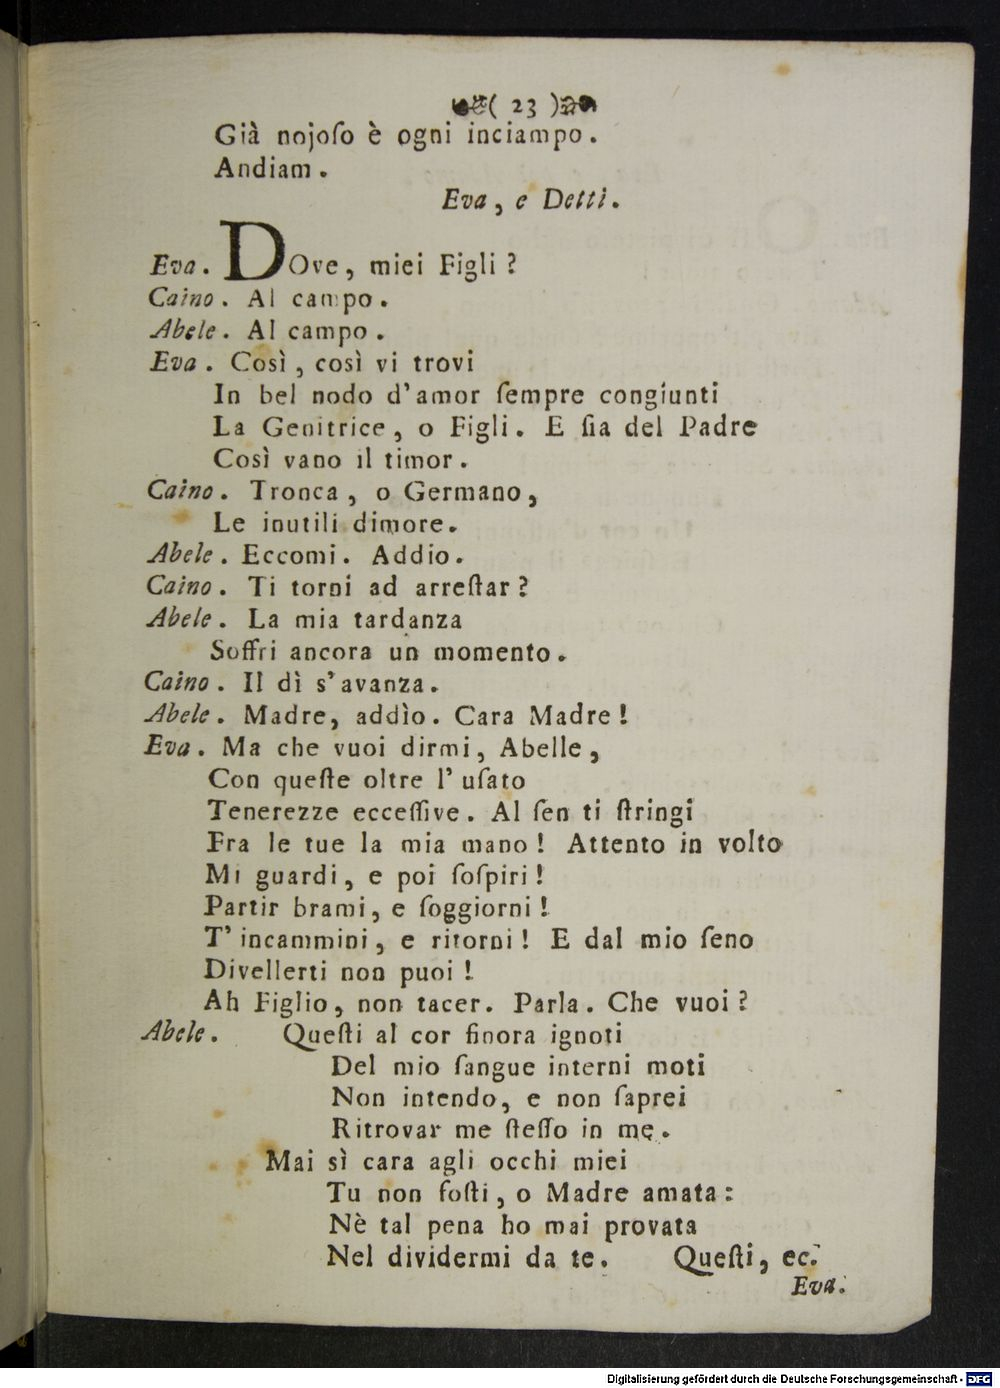 ( 23 )
Già nojoſo è ogni inciampo.
Andiam.
Eva, e Detti.
Eva. DOve, miei Figli?
Caino. Al campo.
Abele. Al campo.
Eva. Così, così vi trovi
In bel nodo d'amor ſempre congiunti
La Genitrice, o Figli. E ſia del Padre
Così vano il timor.
Caino. Tronca, o Germano,
Le inutili dimore.
Abele. Eccomi. Addio.
Caino. Ti torni ad arreſtar?
Abele. La mia tardanza
Soffri ancora un momento.
Caino. Il dì s'avanza.
Abele. Madre, addìo. Cara Madre!
Eva. Ma che vuoi dirmi, Abelle,
Con queſte oltre l' uſato
Tenerezze ecceſſive. Al ſen ti ſtringi
Fra le tue la mia mano! Attento in volto
Mi guardi, e poi ſoſpiri!
Partir brami, e ſoggiorni!
T' incammini, e ritorni! E dal mio ſeno
Divellerti non puoi!
Ah Figlio, non tacer. Parla. Che vuoi?
Abele. Queſti al cor finora ignoti
Del mio ſangue interni moti
Non intendo, e non ſaprei
Ritrovar me ſteſſo in me.
Mai sì cara agli occhi miei
Tu non foſti, o Madre amata:
Nè tal pena ho mai provata
Nel dividermi da te. Queſti, ec.
Eva.
Digitalisierung gefördert durch die Deutsche Forschungsgemeinschaft - DFG